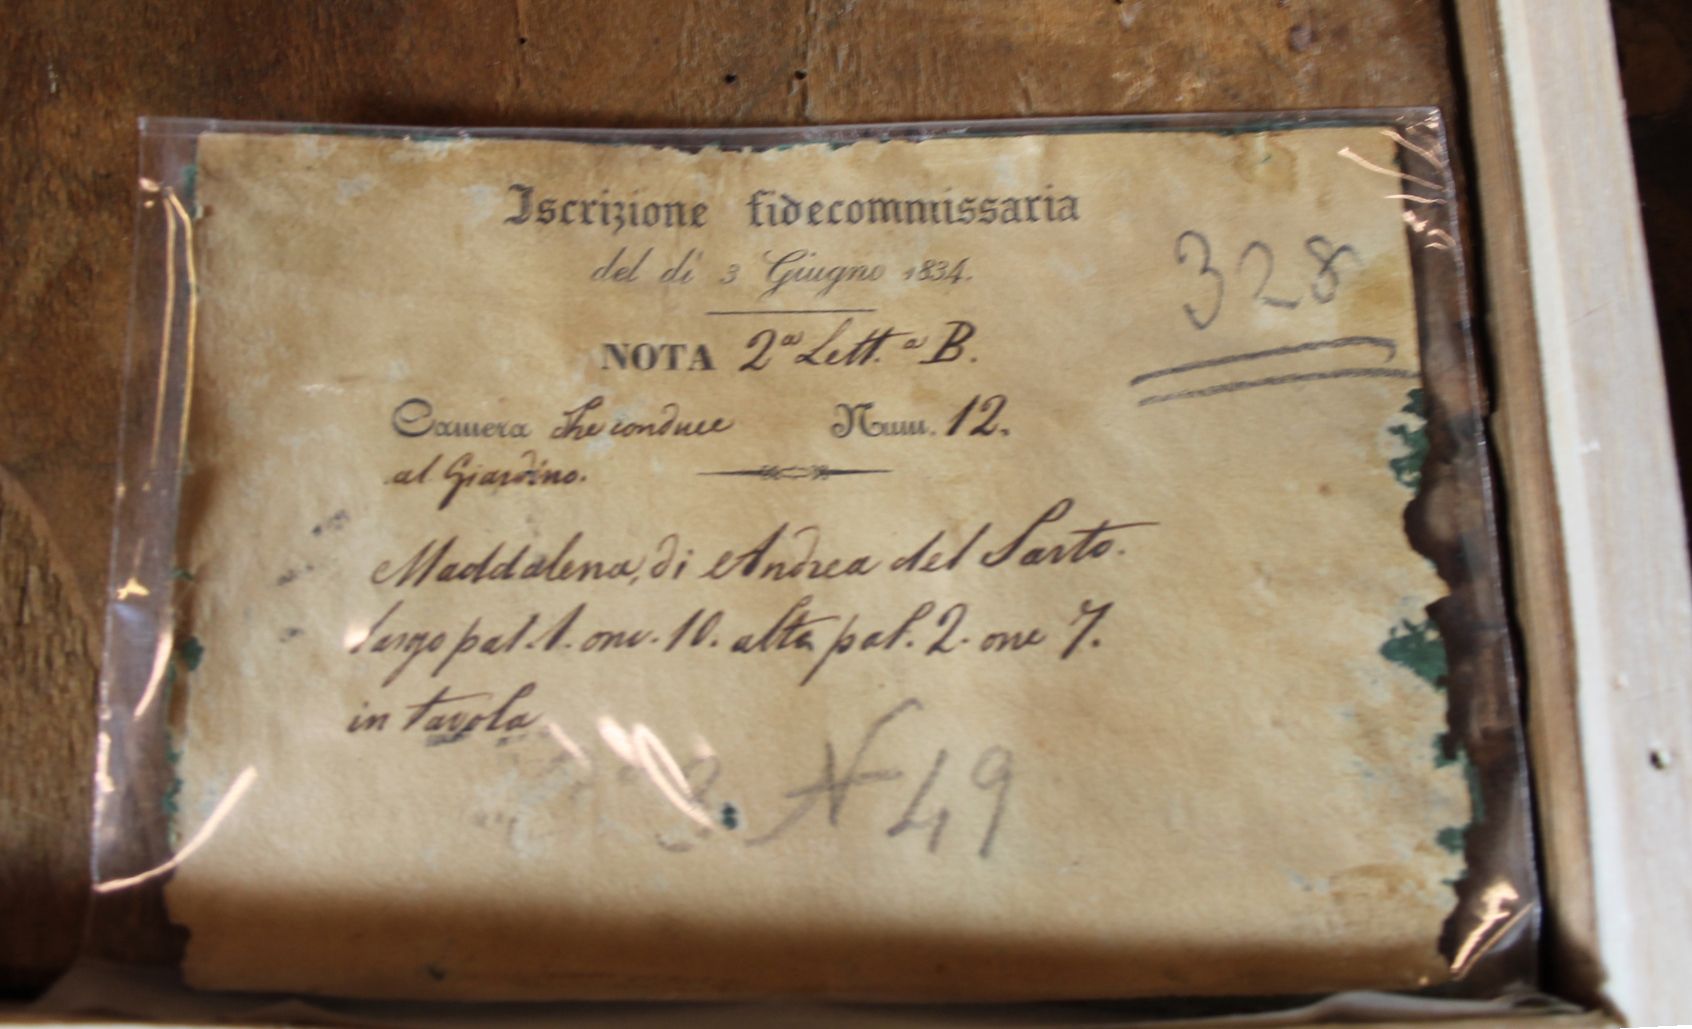 Iscrizione fidecommissaria
del dì 3 Giugno 1834.
328
NOTA 2ª Lett.ª B.
Camera che conduce Num. 12.
al Giardino.
Maddalena, di Andrea del Sarto.
largo pal. 1. onc. 10. alta pal. 2. onc 7.
in tavola
N 49